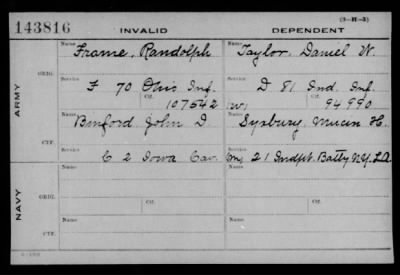 (3-H-3)
143816 INVALID DEPENDENT
Name Name
Frame, Randolph Taylor, Daniel W.
ARMY
ORIG.
Service Service
F 70 Ohio Inf. D 81 Ind. Inf.
Ctf. Ctf.
107542 (W) 94990
Name Name
Binford John D.
CTF.
Service Service
C 2 Iowa Cav. 21 Indpt. Batty N.Y. L.A.
NAVY
Name Name
ORIG.
Service Ctf. Service Ctf.
Name Name
CTF.